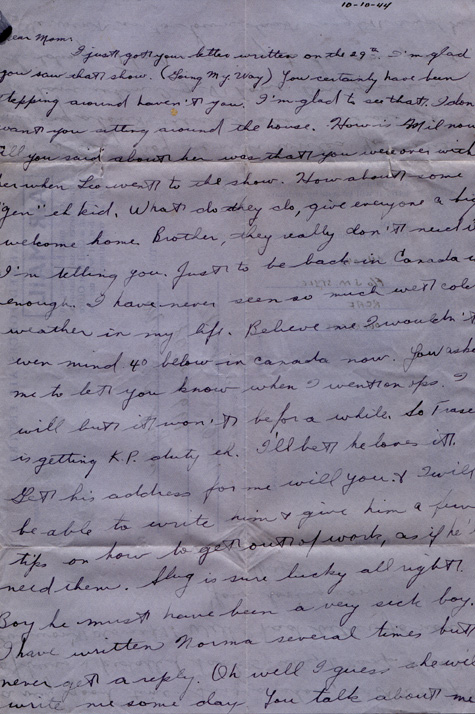 10-10-44
ear Mom:
I just got your letter written on the 29th. I'm glad
you saw that show. (Going My Way) You certainly have been
stepping around haven't you. I'm glad to see that. I don
want you sitting around the house. How is Mil now
All you said about her was that you were over with
her when Leo went to the show. How about some
"gen" eh kid. What do they do, give everyone a big
welcome home. Brother, they really don't need it
I'm telling you. Just to be back in Canada is
enough. I have never seen so much wet cold
weather in my life. Believe me I wouldn't
even mind 40 below in Canada now. You aske
me to let you know when I went on ops. I
will but it won't be for a while. So Frase
is getting K.P. duty eh. I'll bet he loves it.
Get his address for me will you. & I will
be able to write him & give him a few
tips on how to get out of work, as if he
need them. Slug is sure lucky all right.
Boy he must have been a very sick boy.
I have written Norma several times but
never get a reply. Oh well I guess she will
write me some day. You talk about me